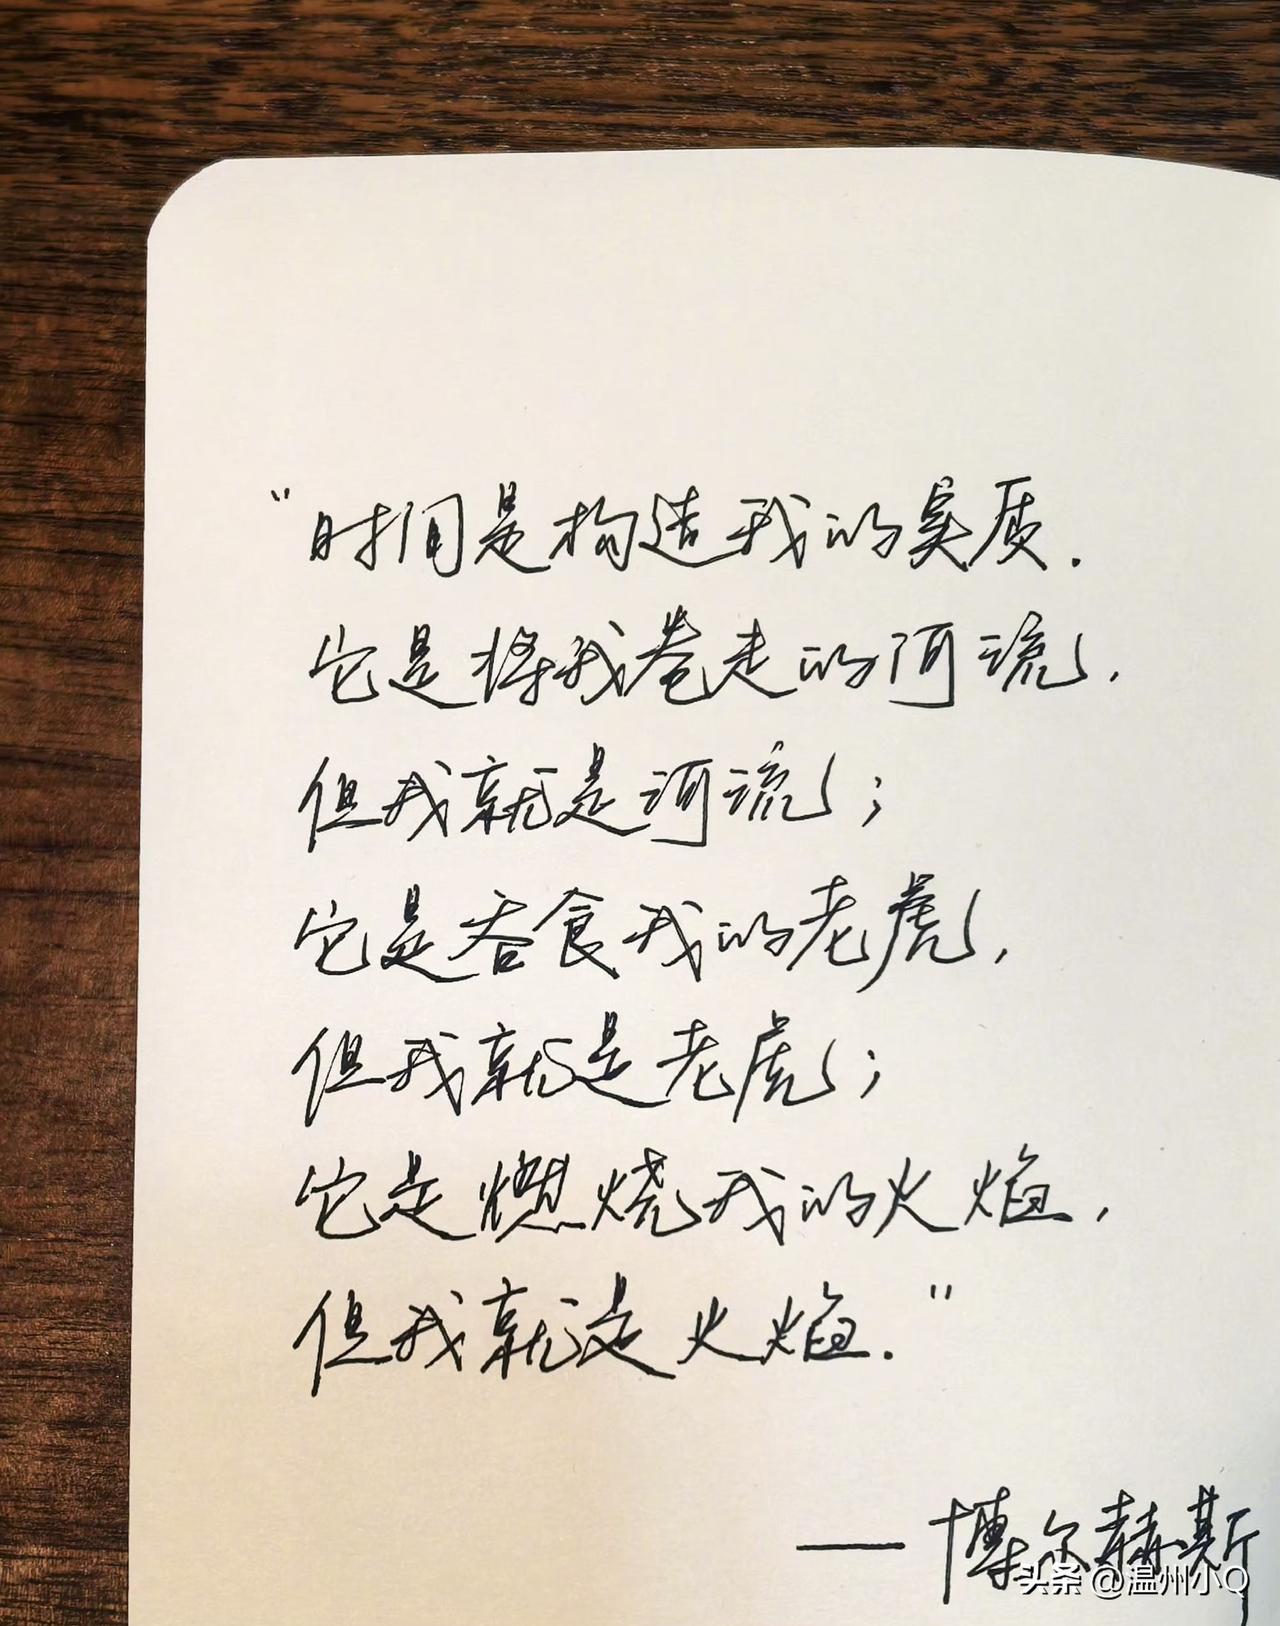 “时间是构造我的实质.
它是将我卷走的河流,
但我就是河流;
它是吞食我的老虎,
但我就是老虎;
它是燃烧我的火焰,
但我就是火焰.”
——博尔赫斯
头条 @温州小Q